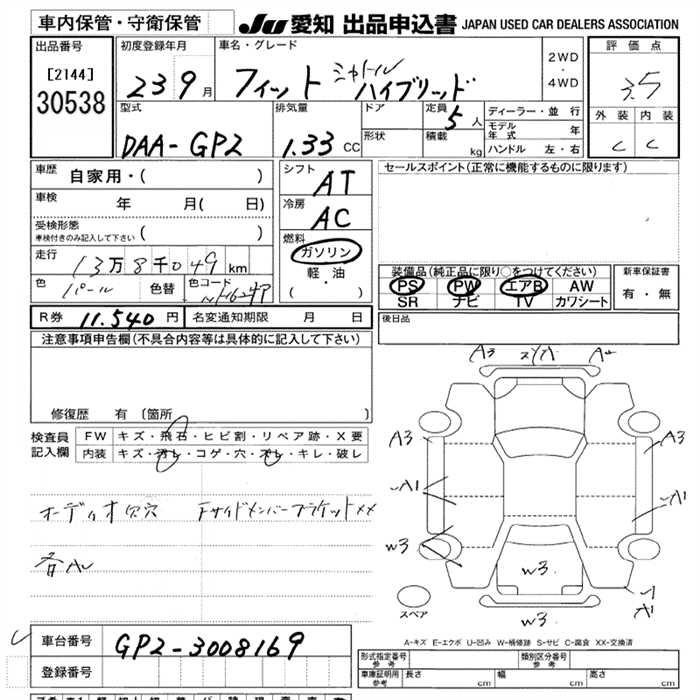 車内保管・守衛保管
JU 愛知 出品申込書 JAPAN USED CAR DEALERS ASSOCIATION
出品番号
[2144]
30538
初度登録年月
23 9 月
車名・グレード
フィット シャトル ハイブリッド
2WD
・
4WD
評価点
3.5
外装 内装
C C
型式
DAA-GP2
排気量
1.33 CC
ドア
形状
定員
5 人
積載
kg
ディーラー・並行
モデル年式 年
ハンドル 左・右
車歴
自家用・( )
車検
年 月( 日)
受検形態
車検付きのみ記入して下さい ( )
走行
13万8千049 km
色
パール
色替
色コード
NH624P
シフト
AT
冷房
AC
燃料
ガソリン
・
軽・油
( )
セールスポイント(正常に機能するものに限ります)
装備品(純正品に限り○をつけてください)
PS PW エアB AW
SR ナビ TV カワシート
新車保証書
有・無
R券 11.540 円
名変通知期限 月 日
後日品
注意事項申告欄(不具合内容等は具体的に記入して下さい)
修復歴 有 〔箇所 〕
検査員記入欄
FW キズ・飛石・ヒビ割・リペア跡・X要
内装 キズ・汚レ・コゲ・穴・スレ・キレ・破レ
オーディオ欠穴 FサイドメンバーブラケットXX
各AU
A3
A3
A3
A1
A1
W3
W3
W3
A1
スペア
A-キズ E-エクボ U-凹み W-補修跡 S-サビ C-腐食 XX-交換済
車台番号 GP2-3008169
登録番号
形式指定番号 参考
類別区分番号 参考
車庫証明用 参考
長さ cm 幅 cm 高さ cm